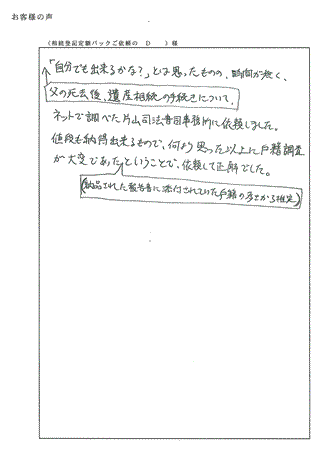 お客様の声
(相続登記定額パックご依頼の D )様
「自分でも出来るかな?」とは思ったものの、時間が無く、
父の死去後、遺産相続の手続きについて、
ネットで調べた片山司法書司事務所に依頼しました。
値段も納得出来るもので、何より思った以上に戸籍調査
が大変であったということで、依頼して正解でした。
(納品された報告書に添付されていた戸籍の多さから推定)